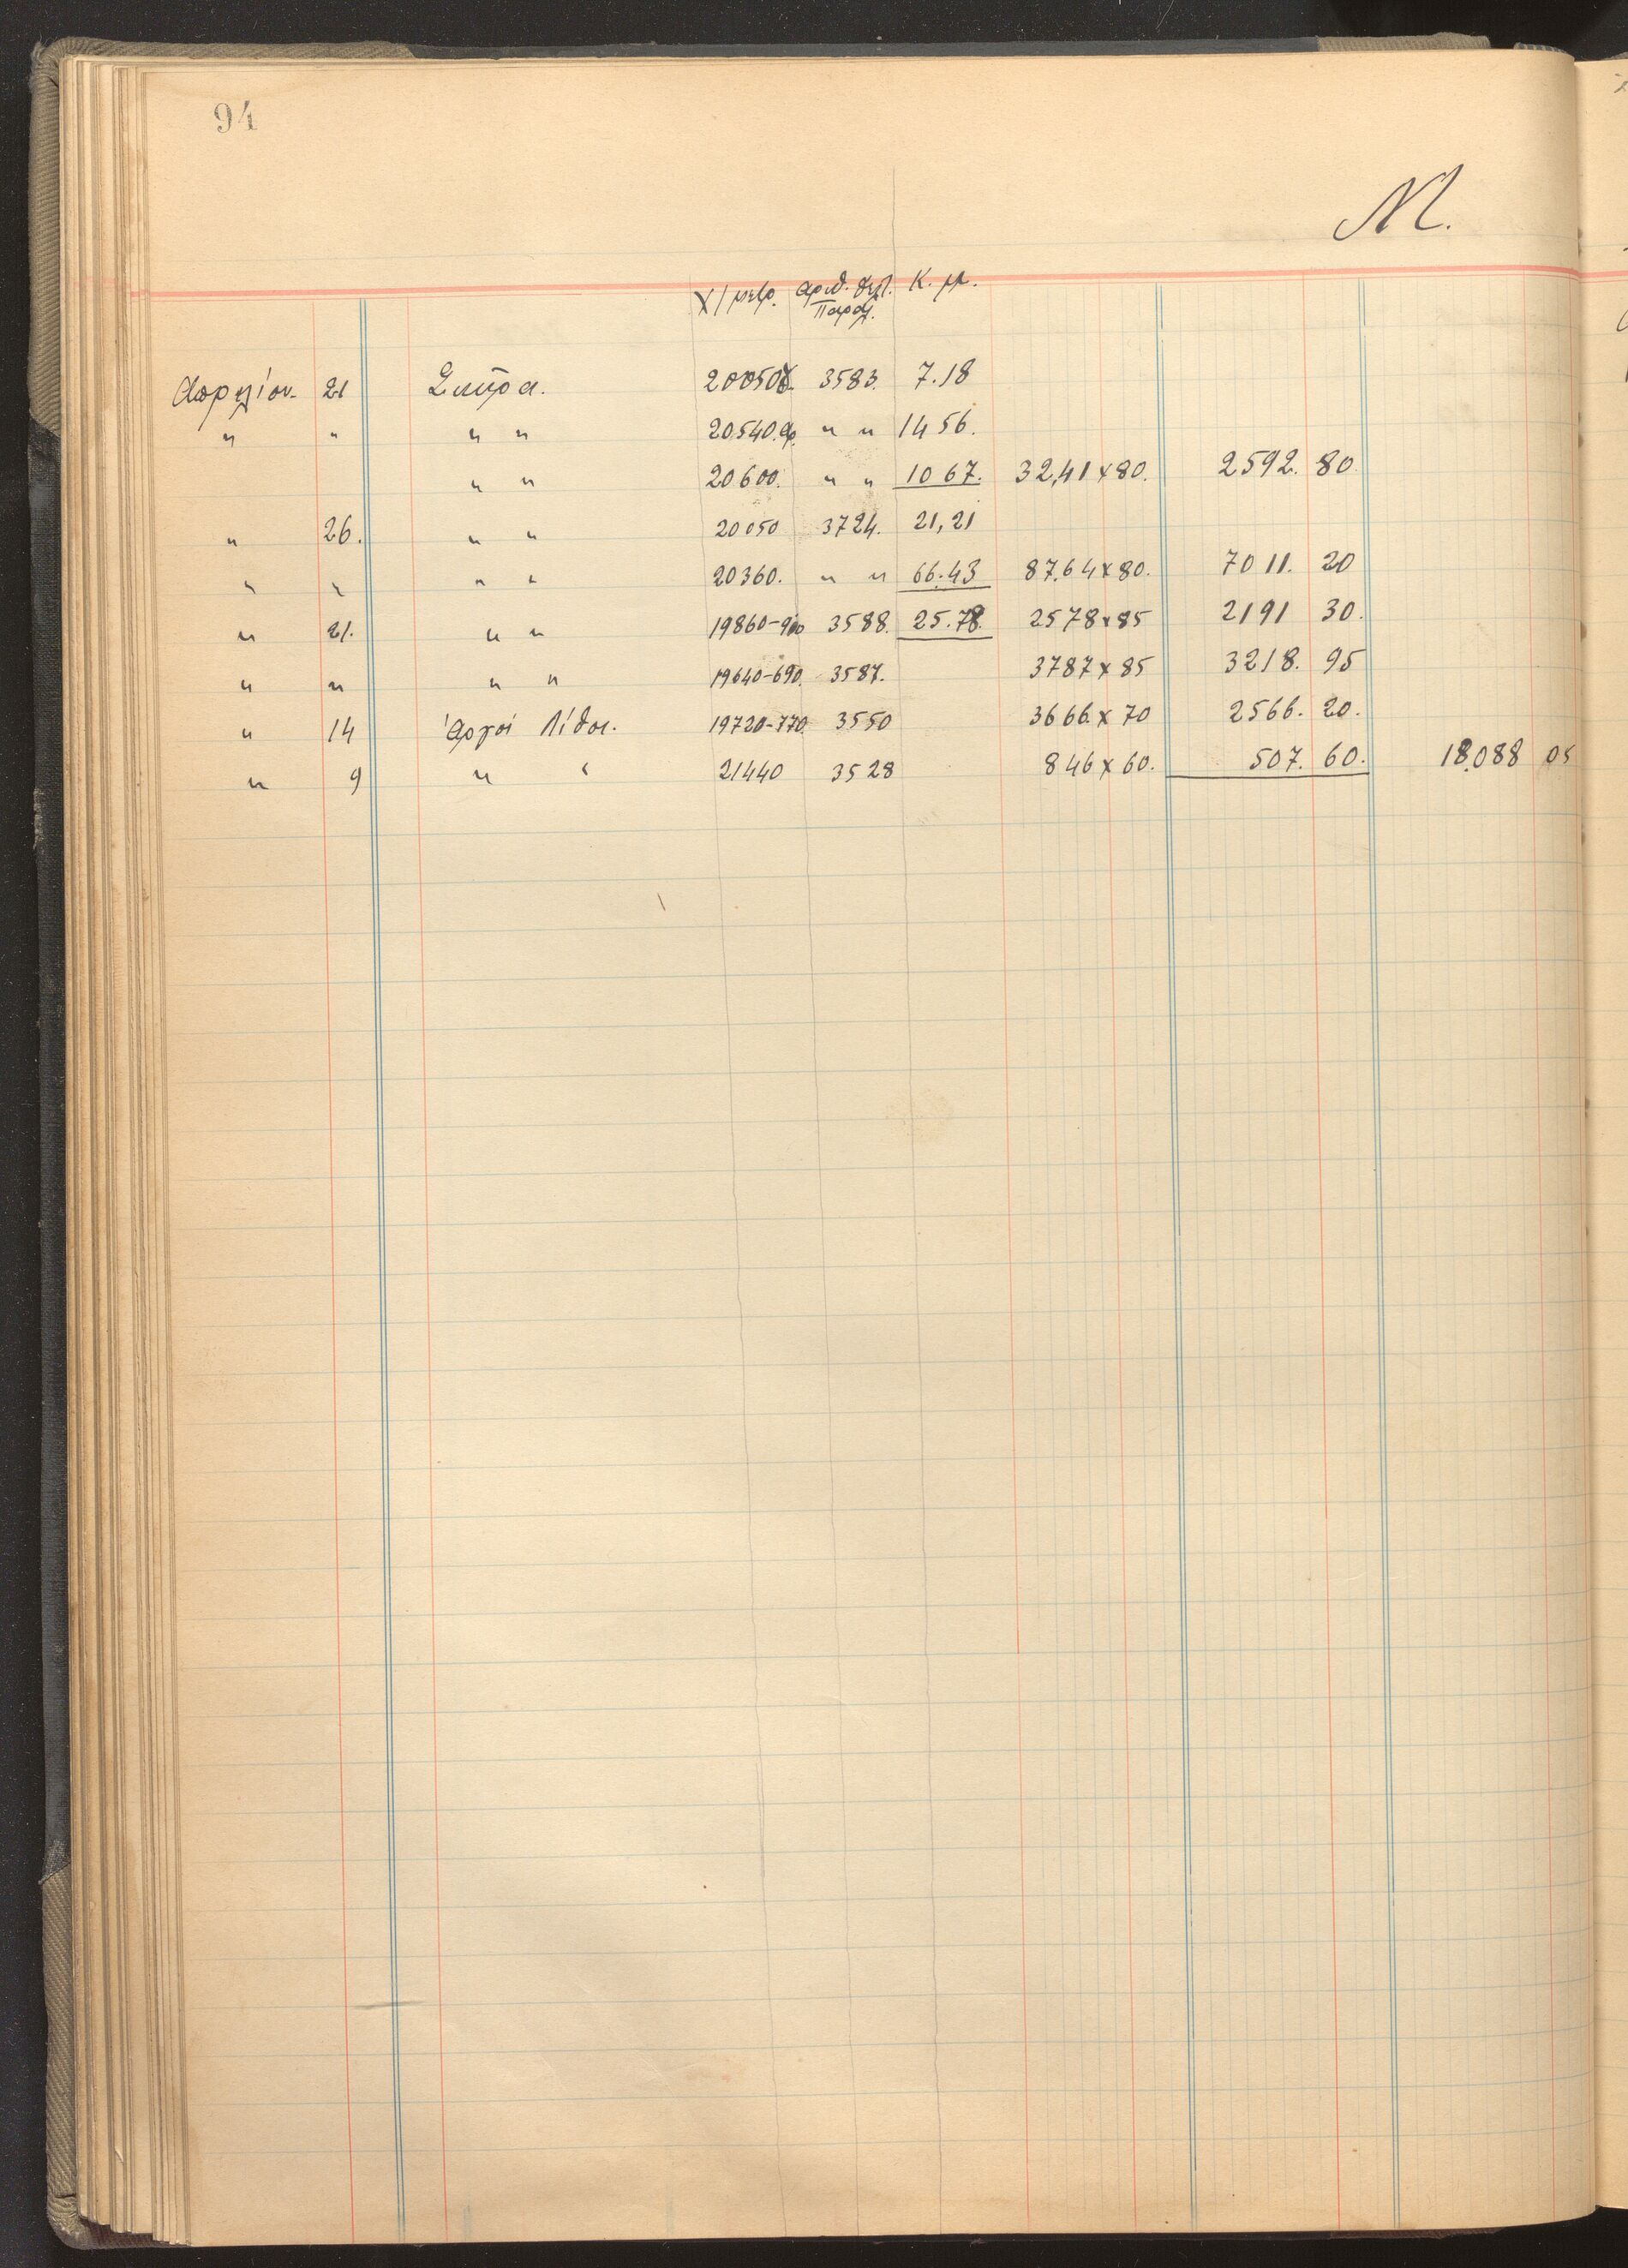 94
Μ.
Χ/μετρ. Αριθ. δελ. Κ. μ.
Παραλ.
Απριλίου. 21 Σκύρα. 20050 3583. 7.18
" " " " 20540. " " 14 56.
" " 20600. " " 10 67. 32,41 x 80. 2592. 80
" 26. " " 20050 3724. 21,21
" " " " 20360. " " 66.43 87.64 x 80. 7011. 20
" 21. " " 19860-900 3588. 25.78. 2578 x 85 2191 30.
" " " " 19640-690. 3587. 3787 x 85 3218. 95
" 14 Ἀργοί λίθοι. 19720-770. 3550 3666. x 70 2566. 20.
" 9 " " 21440 3528 846 x 60. 507. 60. 18.088 05